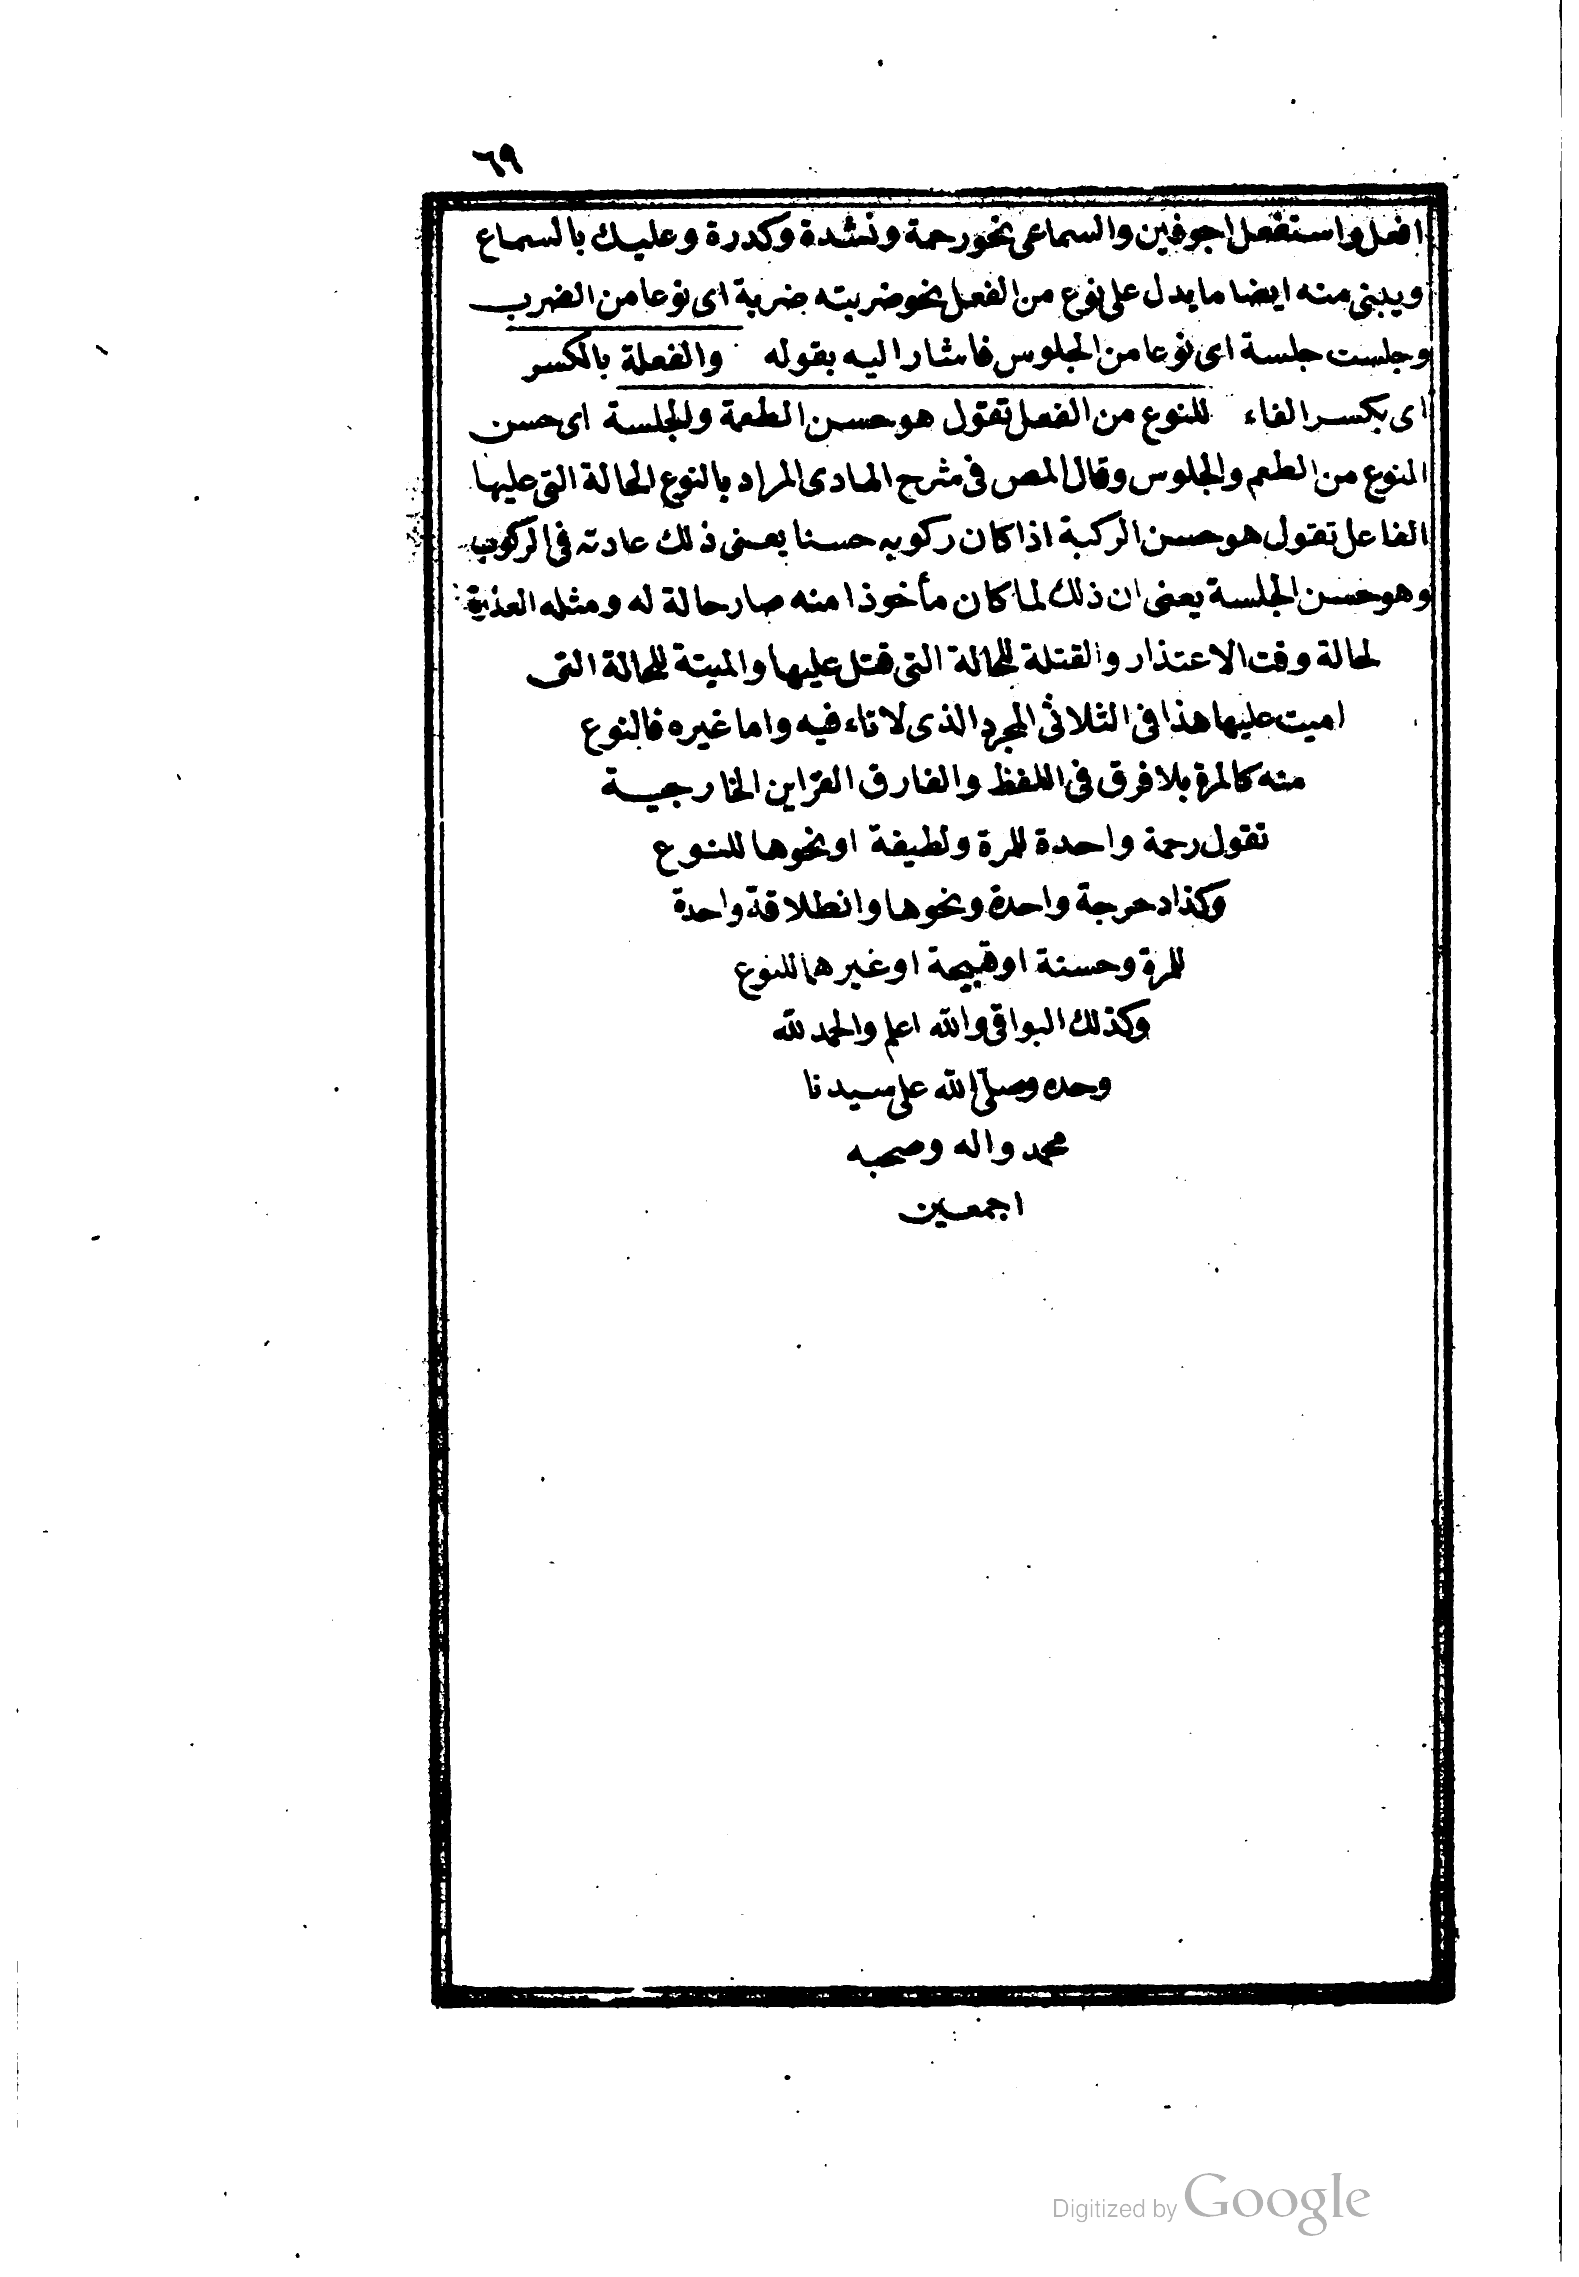 ٦٩
افعل واستفعل اجوفين والسماعى نحو رحمة ونشدة وكدرة وعليك بالسماع
ويبنى منه ايضا ما يدل على نوع من الفعل نحو ضربته ضربة اى نوعا من الضرب
وجلست جلسة اى نوعا من الجلوس فاشار اليه بقوله والفعلة بالكسر
اى بكسر الفاء للنوع من الفعل تقول هو حسن الطعمة والجلسة اى حسن
النوع من الطعم والجلوس وقال المص فى شرح الهادى المراد بالنوع الحالة التى عليها
الفاعل تقول هو حسن الركبة اذا كان ركوبه حسنا يعنى ذلك عادته فى الركوب
وهو حسن الجلسة يعنى ان ذلك لما كان مأخوذا منه صار حالة له ومثله العذرة
لحالة وقت الاعتذار والقتلة للحالة التى قتل عليها والميتة للحالة التى
اميت عليها هذا فى الثلاثى المجرد الذى لا تاء فيه واما غيره فالنوع
منه كالمرة بلا فرق فى اللفظ والفارق القراين الخارجية
تقول رحمة واحدة للمرة ولطيفة او نحوها للنوع
وكذا دحرجة واحدة ونحوها وانطلاقة واحدة
للمرة وحسنة او قبيحة او غيرهما للنوع
وكذلك البواقى والله اعلم والحمد لله
وحده وصلى الله على سيدنا
محمد واله وصحبه
اجمعين
Digitized by Google